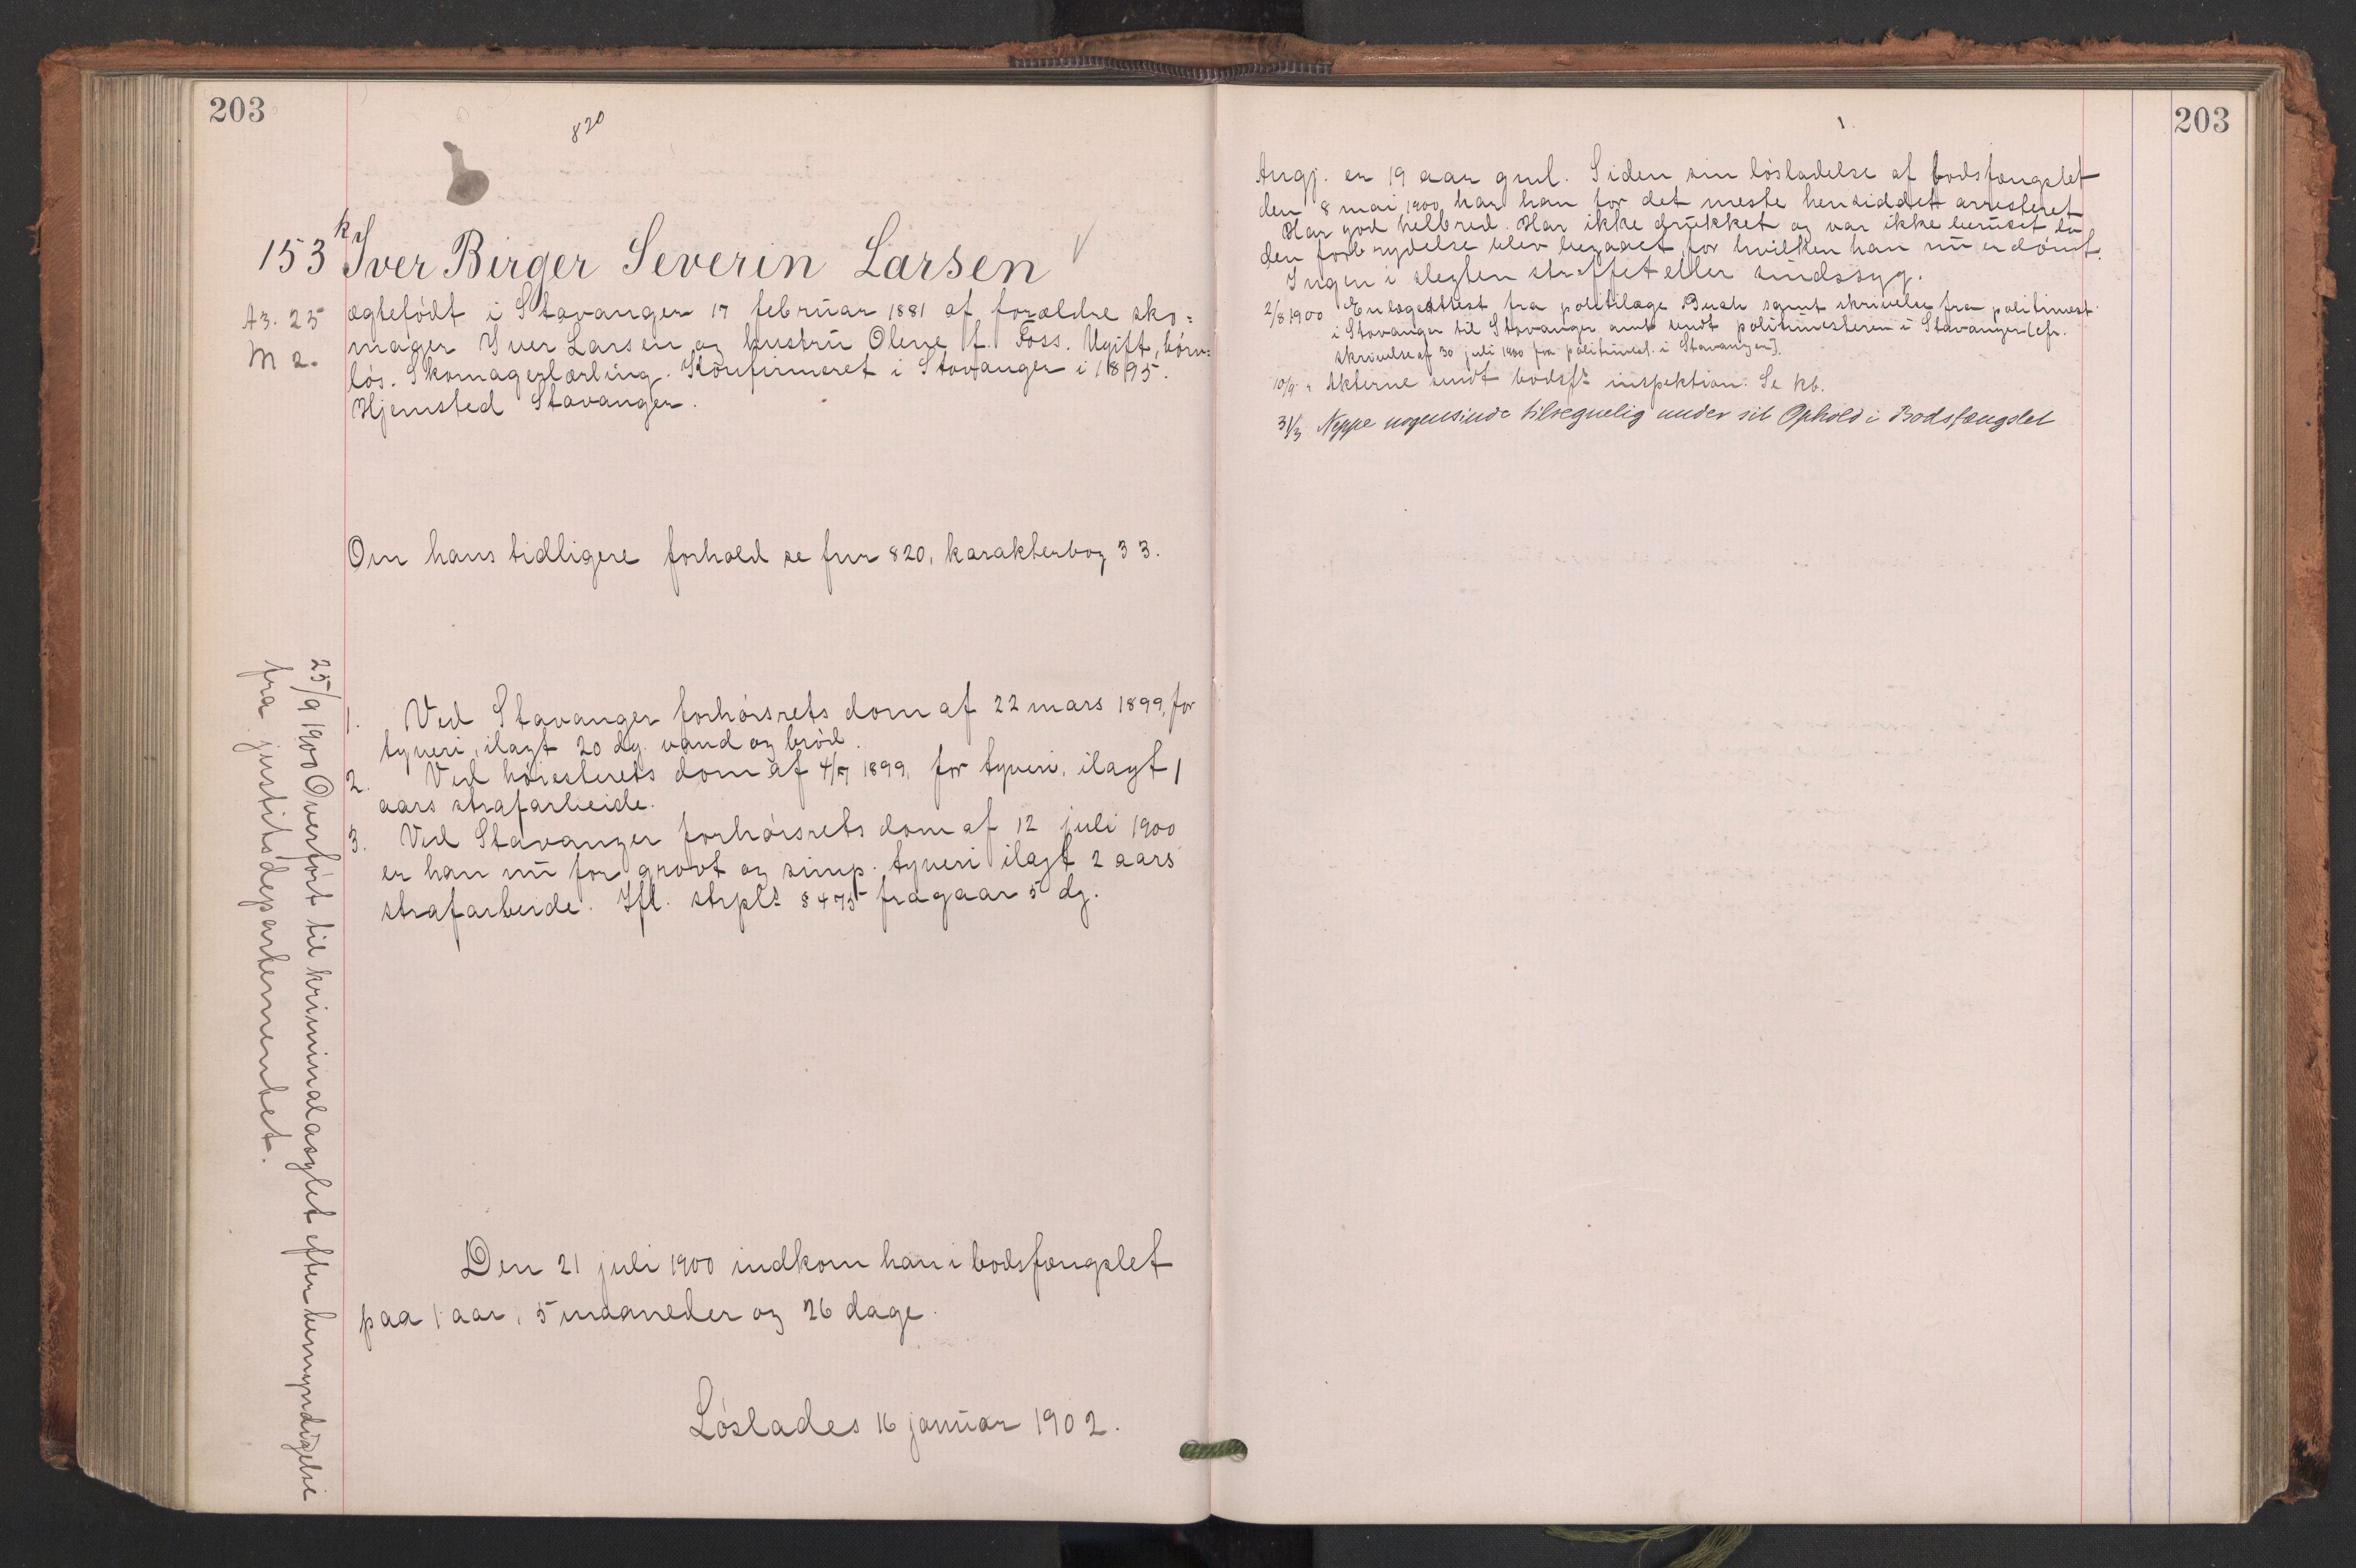 203
820
153 k Iver Birger Severin Larsen
A3. 25
M 2.
ægtefødt i Stavanger 17 februar 1881 af forældre sko=
mager Iver Larsen og hustru Olene f. Foss. Ugift, børn=
løs. Skomagerlærling. Konfirmeret i Stavanger i 1895.
Hjemsted Stavanger.
Om hans tidligere forhold se fnr 820, karakterbog 33.
1. Ved Stavanger forhørsrets dom af 22 mars 1899, for
tyveri, ilagt 20 dg. vand og brød.
2. Ved høiesterets dom af 4/7 1899, for tyveri, ilagt 1
aars strafarbeide.
3. Ved Stavanger forhørsrets dom af 12 juli 1900
er han nu for grovt og simp. tyveri ilagt 2 aars
strafarbeide. Ifl. strpls § 475 fragaar 5 dg.
25/9 1900 Overført til kriminalasylet efter bemyndigelse
fra justitsdepartementet.
Den 21 juli 1900 indkom han i bodsfængslet
paa 1 aar, 5 maaneder og 26 dage.
Løslades 16 januar 1902.
203
1.
Angj. er 19 aar gml. Siden sin løsladelse af bodsfængslet
den 8 mai 1900 har han for det meste hensiddet arresteret
Har god helbred. Har ikke drukket og var ikke beruset da
den forbrydelse blev begaaet for hvilken han nu er dømt.
Ingen i slegten straffet eller sindssyg.
2/8 1900 En lægeattest fra politilæge Buch samt skrivelse fra politimest.
i Stavanger til Stavanger amt sendt politimesteren i Stavanger (cfr.
skrivelse af 30 juli 1900 fra politimest. i Stavanger).
10/9 " Akterne sendt bodsfs inspektion. Se kb.
31/3 Neppe nogensinde tilregnelig under sit Ophold i Bodsfængslet